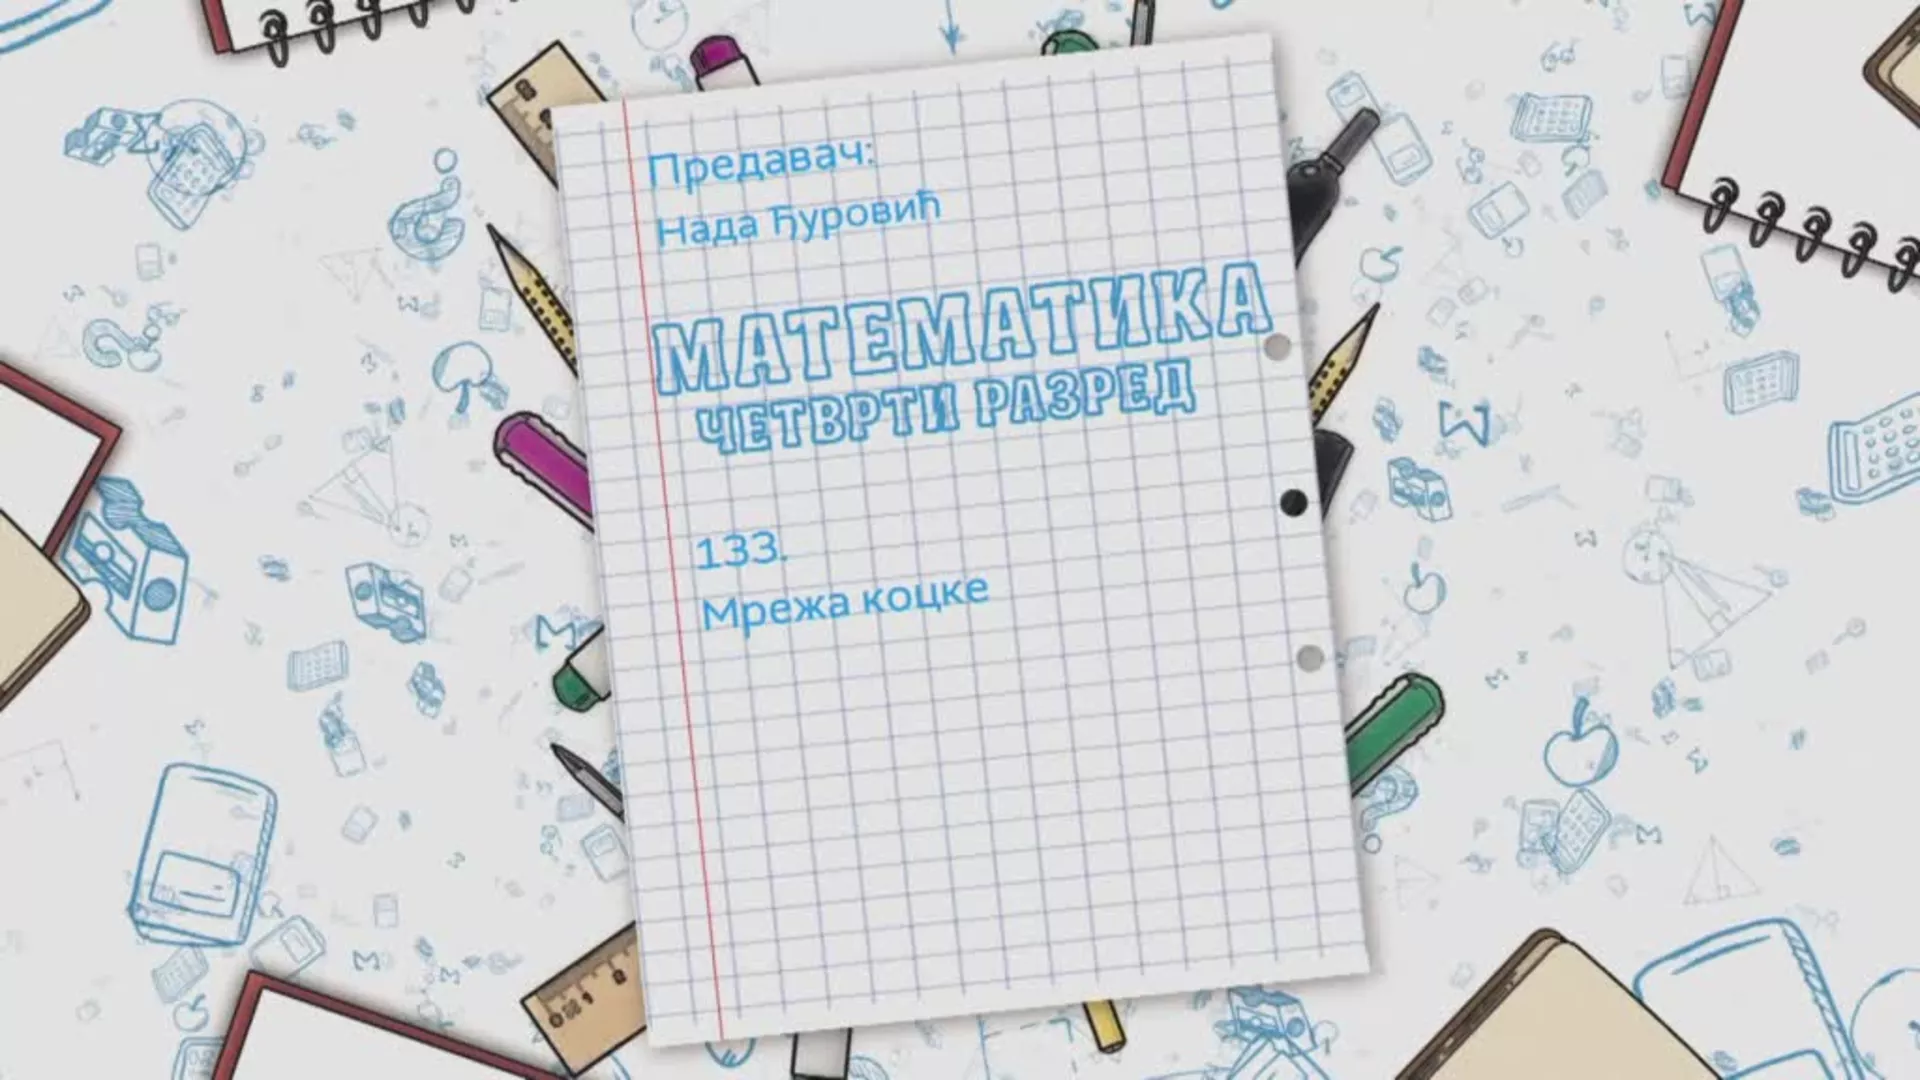 Предавач:
Нада Ђуровић
МАТЕМАТИКА
ЧЕТВРТИ РАЗРЕД
133.
Мрежа коцке